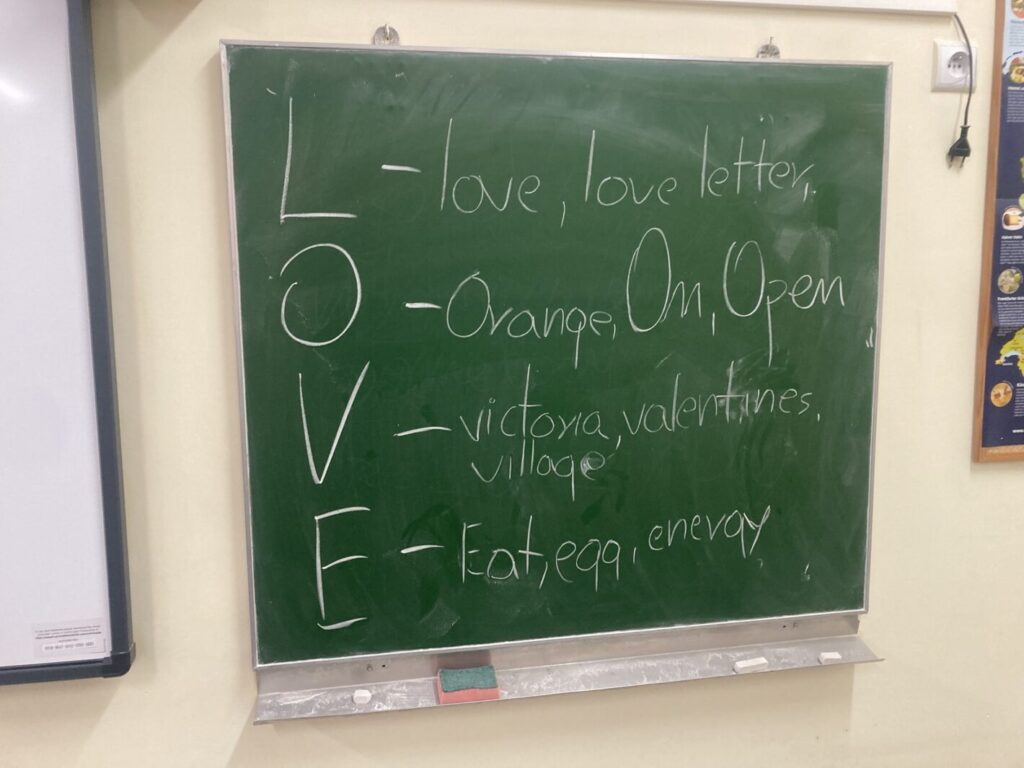 L - love, love letter,
O - Orange, On, Open
V - victoria, valentines,
village
E - Eat, egg, energy